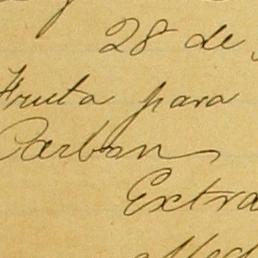 28 de
Fruta para
Carbon
Extra